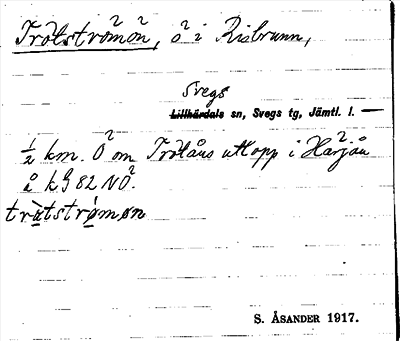 Trötströmön, ö i Risbrunn,
Svegs
Lillhärdals sn, Svegs tg, Jämtl. l. —
½ km. Ö om Trötåns utlopp i Harjån
å kG 82 NÖ.
S. ÅSANDER 1917.